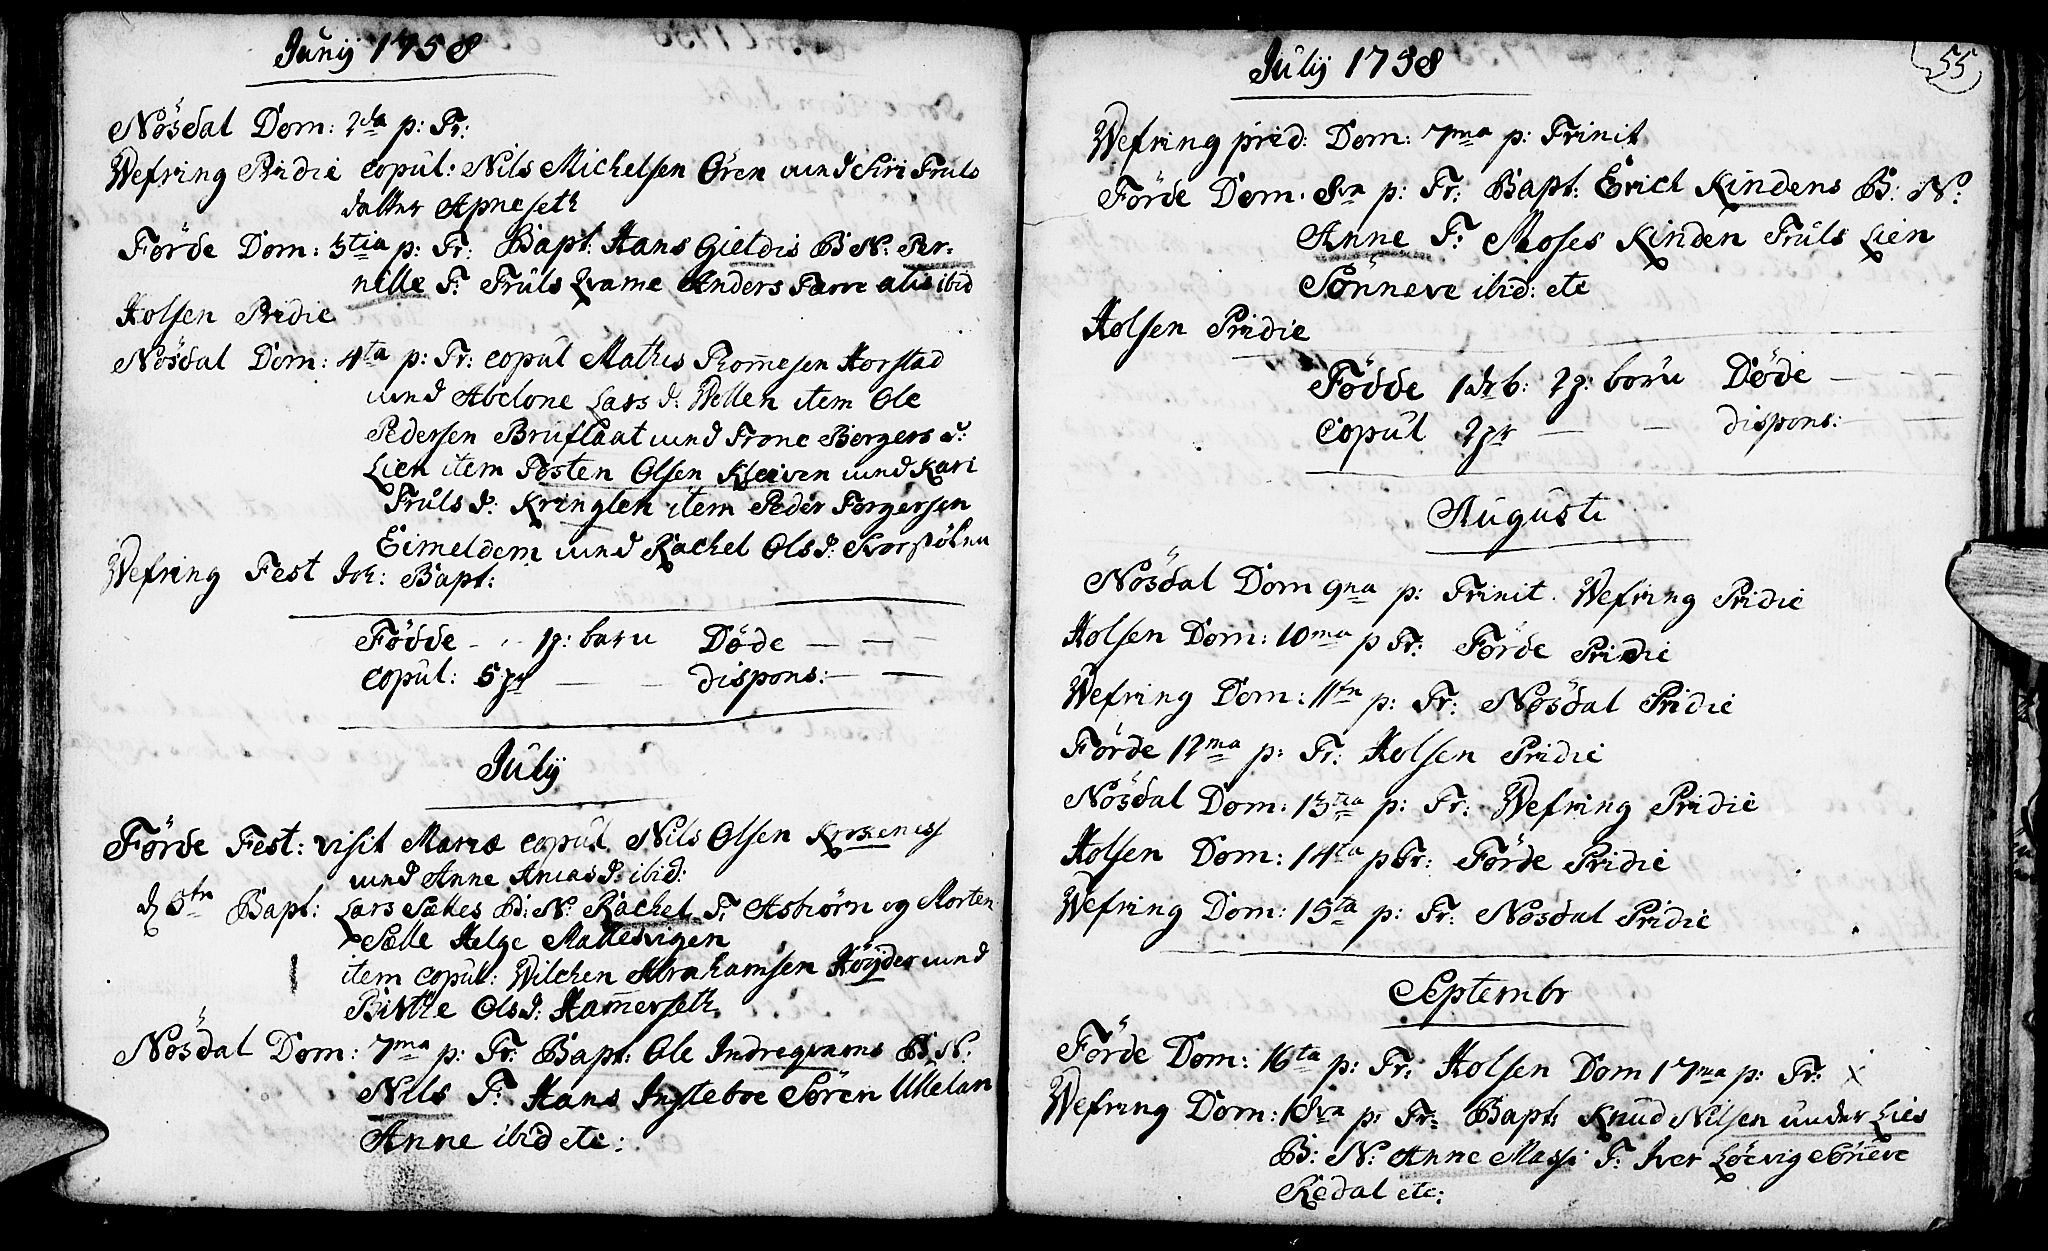 Junij 1738
Nösdal Dom: 2da p: Tr:
Wefring Pridie copul: Nils Michelsen Ören und Siri Truls
datter Apneseth
Förde Dom: 3tia p: Tr: Bapt: Hans Gieldis B N: Per-
nille T: Truls Qvame Anders Farre alii ibid
Holsen Pridie
Nösdal Dom: 4ta p: Tr: copul Mathis Thom̅esen Horstad
und Abelone Lars d: Wellen item Ole
Pedersen Bruflaat und Trone Borgers d:
Lien item Tosten Olsen Kleiven und Kari
Truls d: Kringlen item Peder Torgersen
Eimeldem und Rachel Ols d:
Wefring Fest Joh: Bapt:
Födde - - 1 p: barn Döde — —
copul: 5 pr — - dispons: — —
Július
Förde Fest: visit Mariæ copul Nils Olsen Kroxeness
und Anne d: ibid:
Bapt: Lars Sælles B: N: Rachel T: Asbiörn og Morten
Sælle Helge Mallesvigen
item copul: Wilchen Abrahamsen Höyder und
Birthe Ols d: Ham̅erseth
Nösdal Dom: 7ma p: Tr: Bapt: Ole Indreqvams B: N:
Nils T: Hans Ingleboe Sören Ullelan
Anne ibid etc:
55
Julij 1738
Wefring prid: Dom: 7ma p: Trinit
Förde Dom: 8va p: Tr: Bapt: Erich Kindens B: N:
Anne T: Moses Kinden Truls Lien
Sönneve ibid: etc
Holsen Pridie
Födde 1 b: 2 p: born Döde — —
copul 2 pr — - dispons: — —
Augusti
Nösdal Dom 9na p: Trinit. Wefring Pridie
Holsen Dom: 10ma p Tr: Förde Pridie
Wefring Dom: 11ta p: Tr: Nösdal Pridie
Förde 12ma p: Tr: Holsen Pridie
Nösdal Dom: 13tia p: Tr: Wefring Pridie
Holsen Dom: 14ta p Tr: Förde Pridie
Wefring Dom: 15ta p: Tr: Nösdal Pridie
Septembr
Förde Dom: 16ta p: Tr: Holsen Dom 17ma p: Tr: X
Wefring Dom: 18va p: Tr: Bapt: Knud Nilsen under Lies
B: N: Anne Massi T: Iver Löevig Sön̅eve
Redal etc: